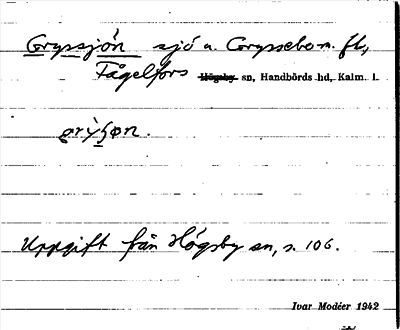 Gryssjön sjö u. Gryssebo m. fl.,
Fågelfors Högsby sn, Handbörds hd, Kalm. l.
Uppgift från Högsby sn, s. 106.
Ivar Modéer 1942